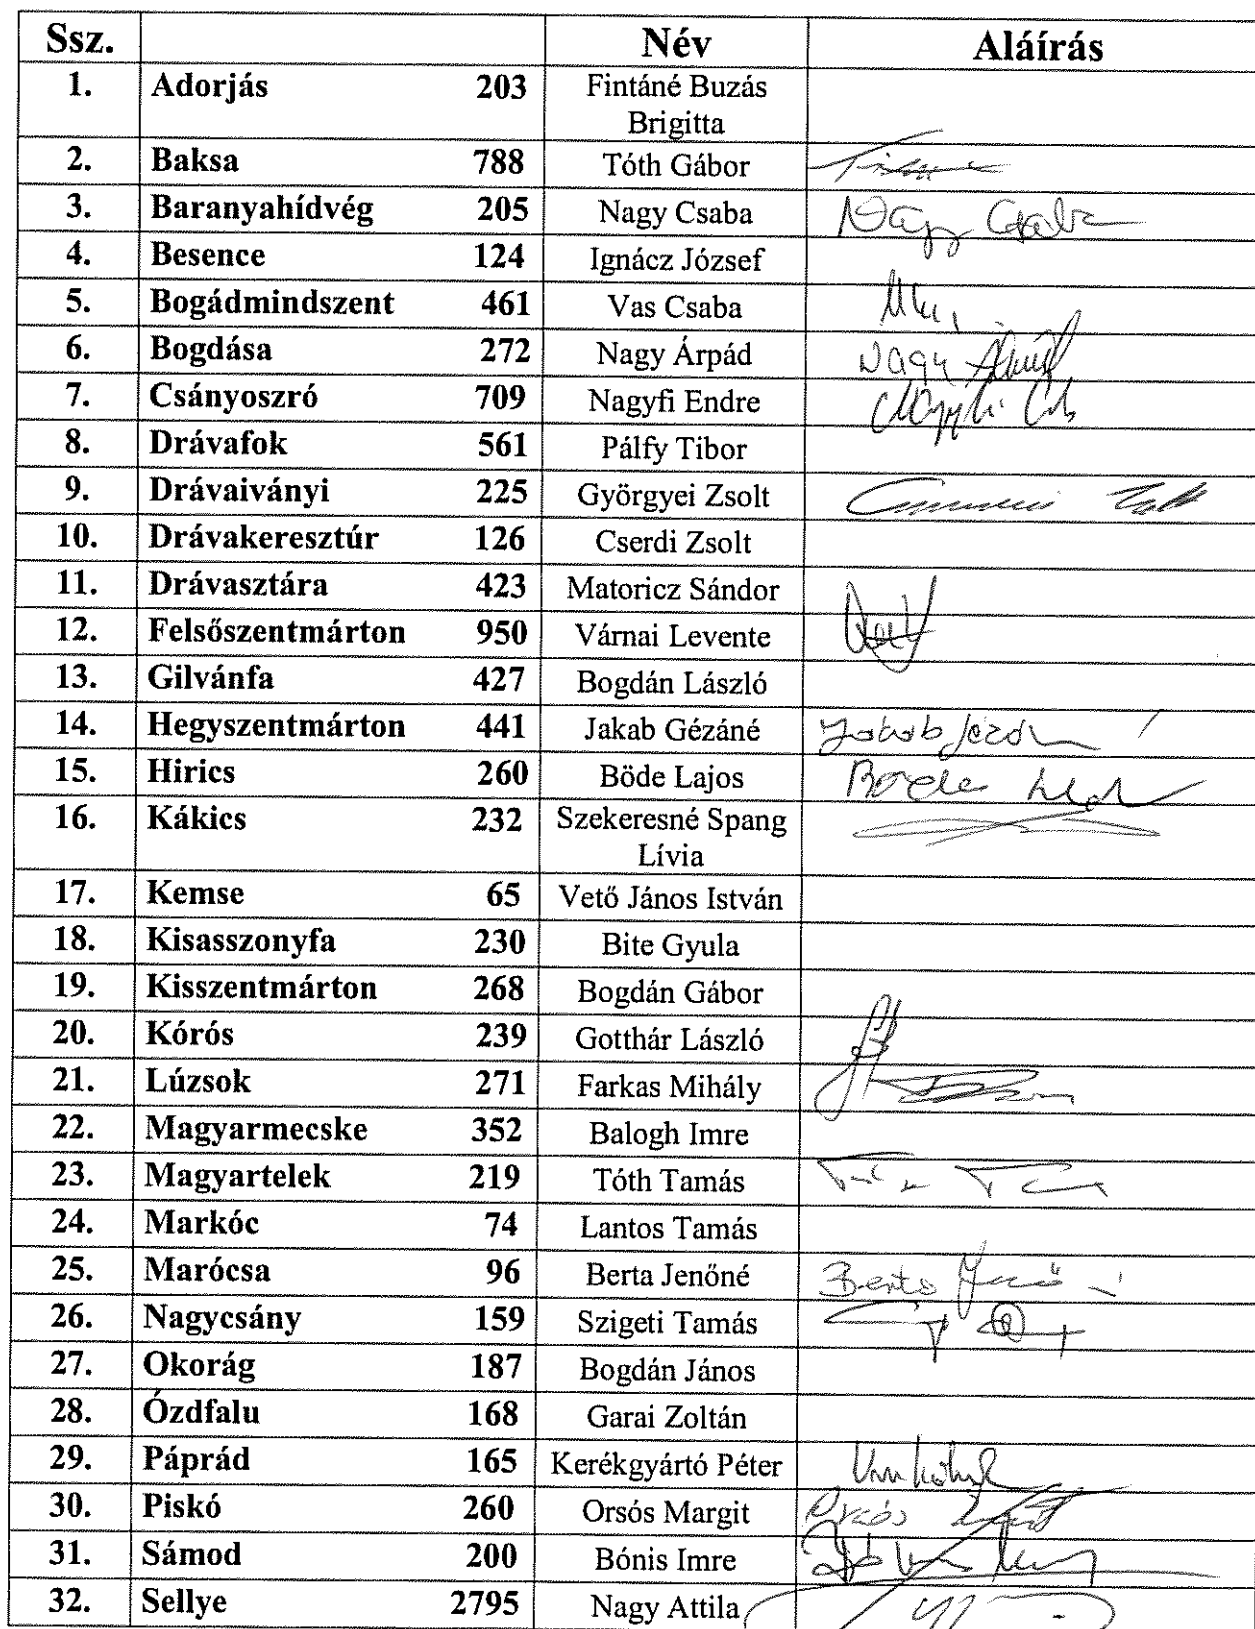 Ssz. Név Aláírás
1. Adorjás 203 Fintáné Buzás
Brigitta
2. Baksa 788 Tóth Gábor
3. Baranyahídvég 205 Nagy Csaba Nagy Csaba
4. Besence 124 Ignácz József
5. Bogádmindszent 461 Vas Csaba
6. Bogdása 272 Nagy Árpád Nagy Árpád
7. Csányoszró 709 Nagyfi Endre
8. Drávafok 561 Pálfy Tibor
9. Drávaiványi 225 Györgyei Zsolt
10. Drávakeresztúr 126 Cserdi Zsolt
11. Drávasztára 423 Matoricz Sándor
12. Felsőszentmárton 950 Várnai Levente
13. Gilvánfa 427 Bogdán László
14. Hegyszentmárton 441 Jakab Gézáné
15. Hirics 260 Böde Lajos
16. Kákics 232 Szekeresné Spang
Lívia
17. Kemse 65 Vető János István
18. Kisasszonyfa 230 Bite Gyula
19. Kisszentmárton 268 Bogdán Gábor
20. Kórós 239 Gotthár László
21. Lúzsok 271 Farkas Mihály
22. Magyarmecske 352 Balogh Imre
23. Magyartelek 219 Tóth Tamás
24. Markóc 74 Lantos Tamás
25. Marócsa 96 Berta Jenőné
26. Nagycsány 159 Szigeti Tamás
27. Okorág 187 Bogdán János
28. Ózdfalu 168 Garai Zoltán
29. Páprád 165 Kerékgyártó Péter
30. Piskó 260 Orsós Margit
31. Sámod 200 Bónis Imre
32. Sellye 2795 Nagy Attila